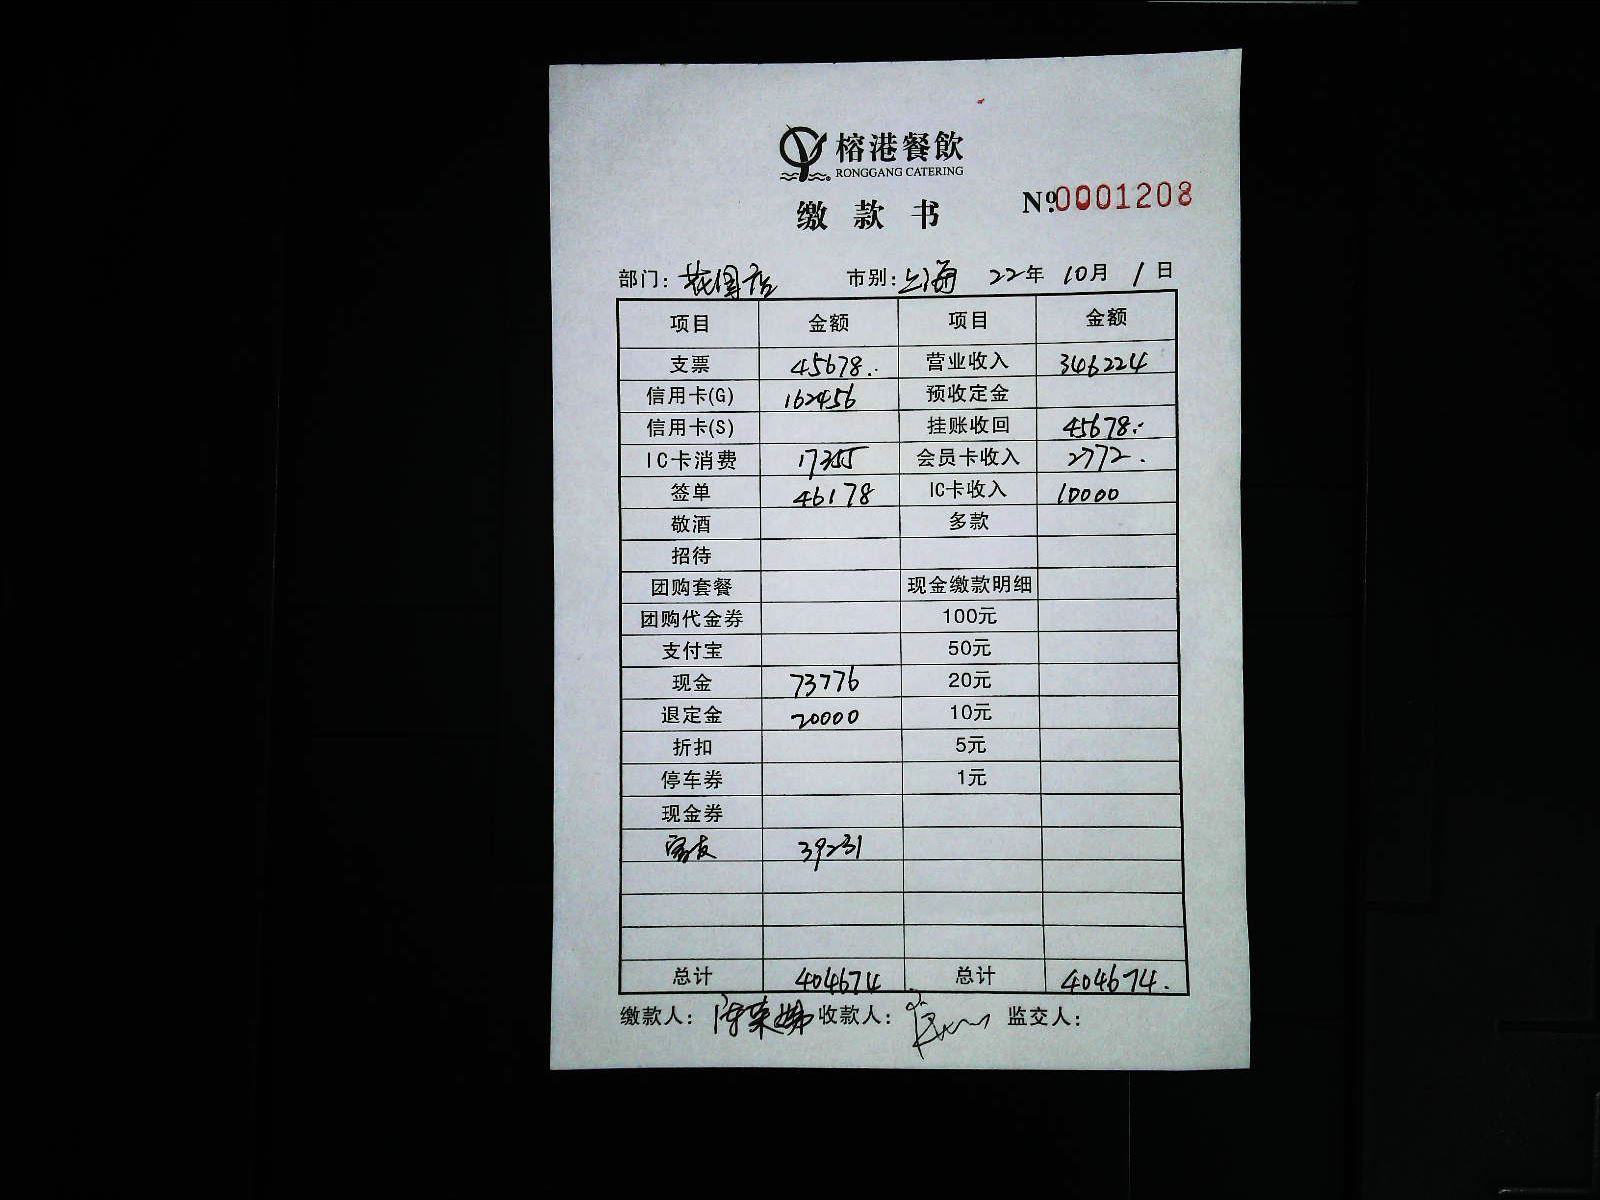 榕港餐飲
RONGGANG CATERING
缴款书 №0001208
部门: 花园店 市别: 上海 22年 10月 1日
项目 金额 项目 金额
支票 45678. 营业收入 346224
信用卡(G) 162456 预收定金
信用卡(S) 挂账收回 45678.
IC卡消费 17355 会员卡收入 2772.
签单 46178 IC卡收入 10000
敬酒 多款
招待
团购套餐 现金缴款明细
团购代金券 100元
支付宝 50元
现金 73776 20元
退定金 20000 10元
折扣 5元
停车券 1元
现金券
39231
总计 404674 总计 404674.
缴款人: 收款人: 监交人: